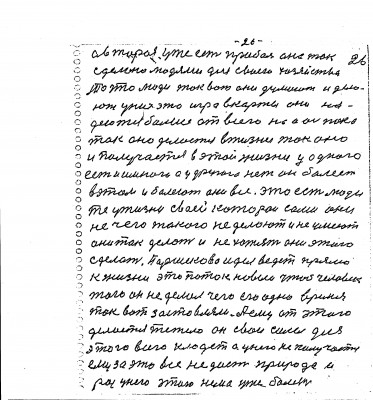 -26-
26
а вторая уже ест прибая она так
сделано людями для своего хозяйства
Поэто люди так вот они думают и дела-
ют у них это игра в карты они на-
деются больше от всего на
так оно делается в жизни так оно
и получается в этой жизни у одного
есть и много а у другого нет он болеет
в этом и болеют они все. Это ест люди
те у жизни своей которои сами они
не чего такого не делают и не умеют
они так делат и не хотят они этого
сделат. Паршекова идея ведет прямо
к жизни это поток новый чтоб человек
того он не делал чего его одно время
так вот заставляли. Ему от этого
делается тяжело он свои силы для
этого всего кладет а у него не получается
ему за это все не даст природа и
раз у него этого нема уже больш